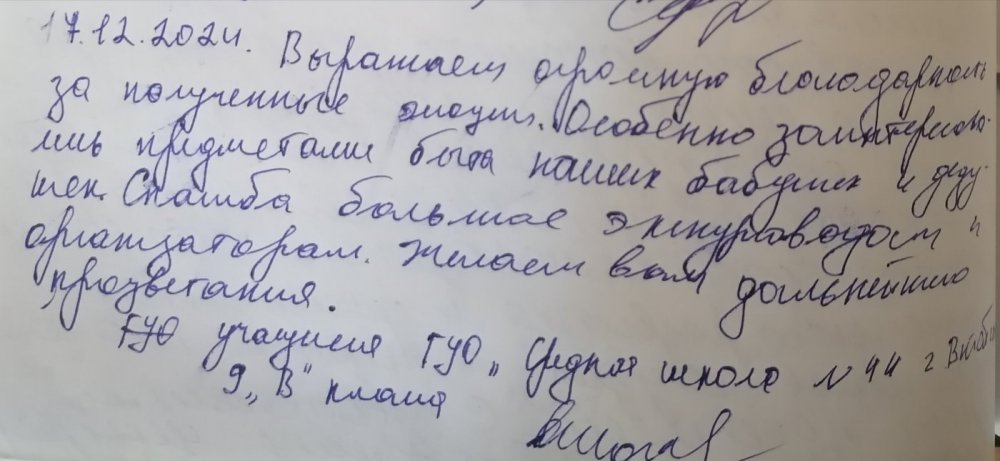 17.12.2024. Выражаем огромную благодарность
за полученные эмоции. Особенно заинтересова-
лись предметами быта наших бабушек и деду-
шек. Спасиба большое экскурсоводам и
организаторам. Желаем вам дальнейшего
процветания.
ГУО учащиеся ГУО „Средняя школа №44 г Витебска
9 „В" класса